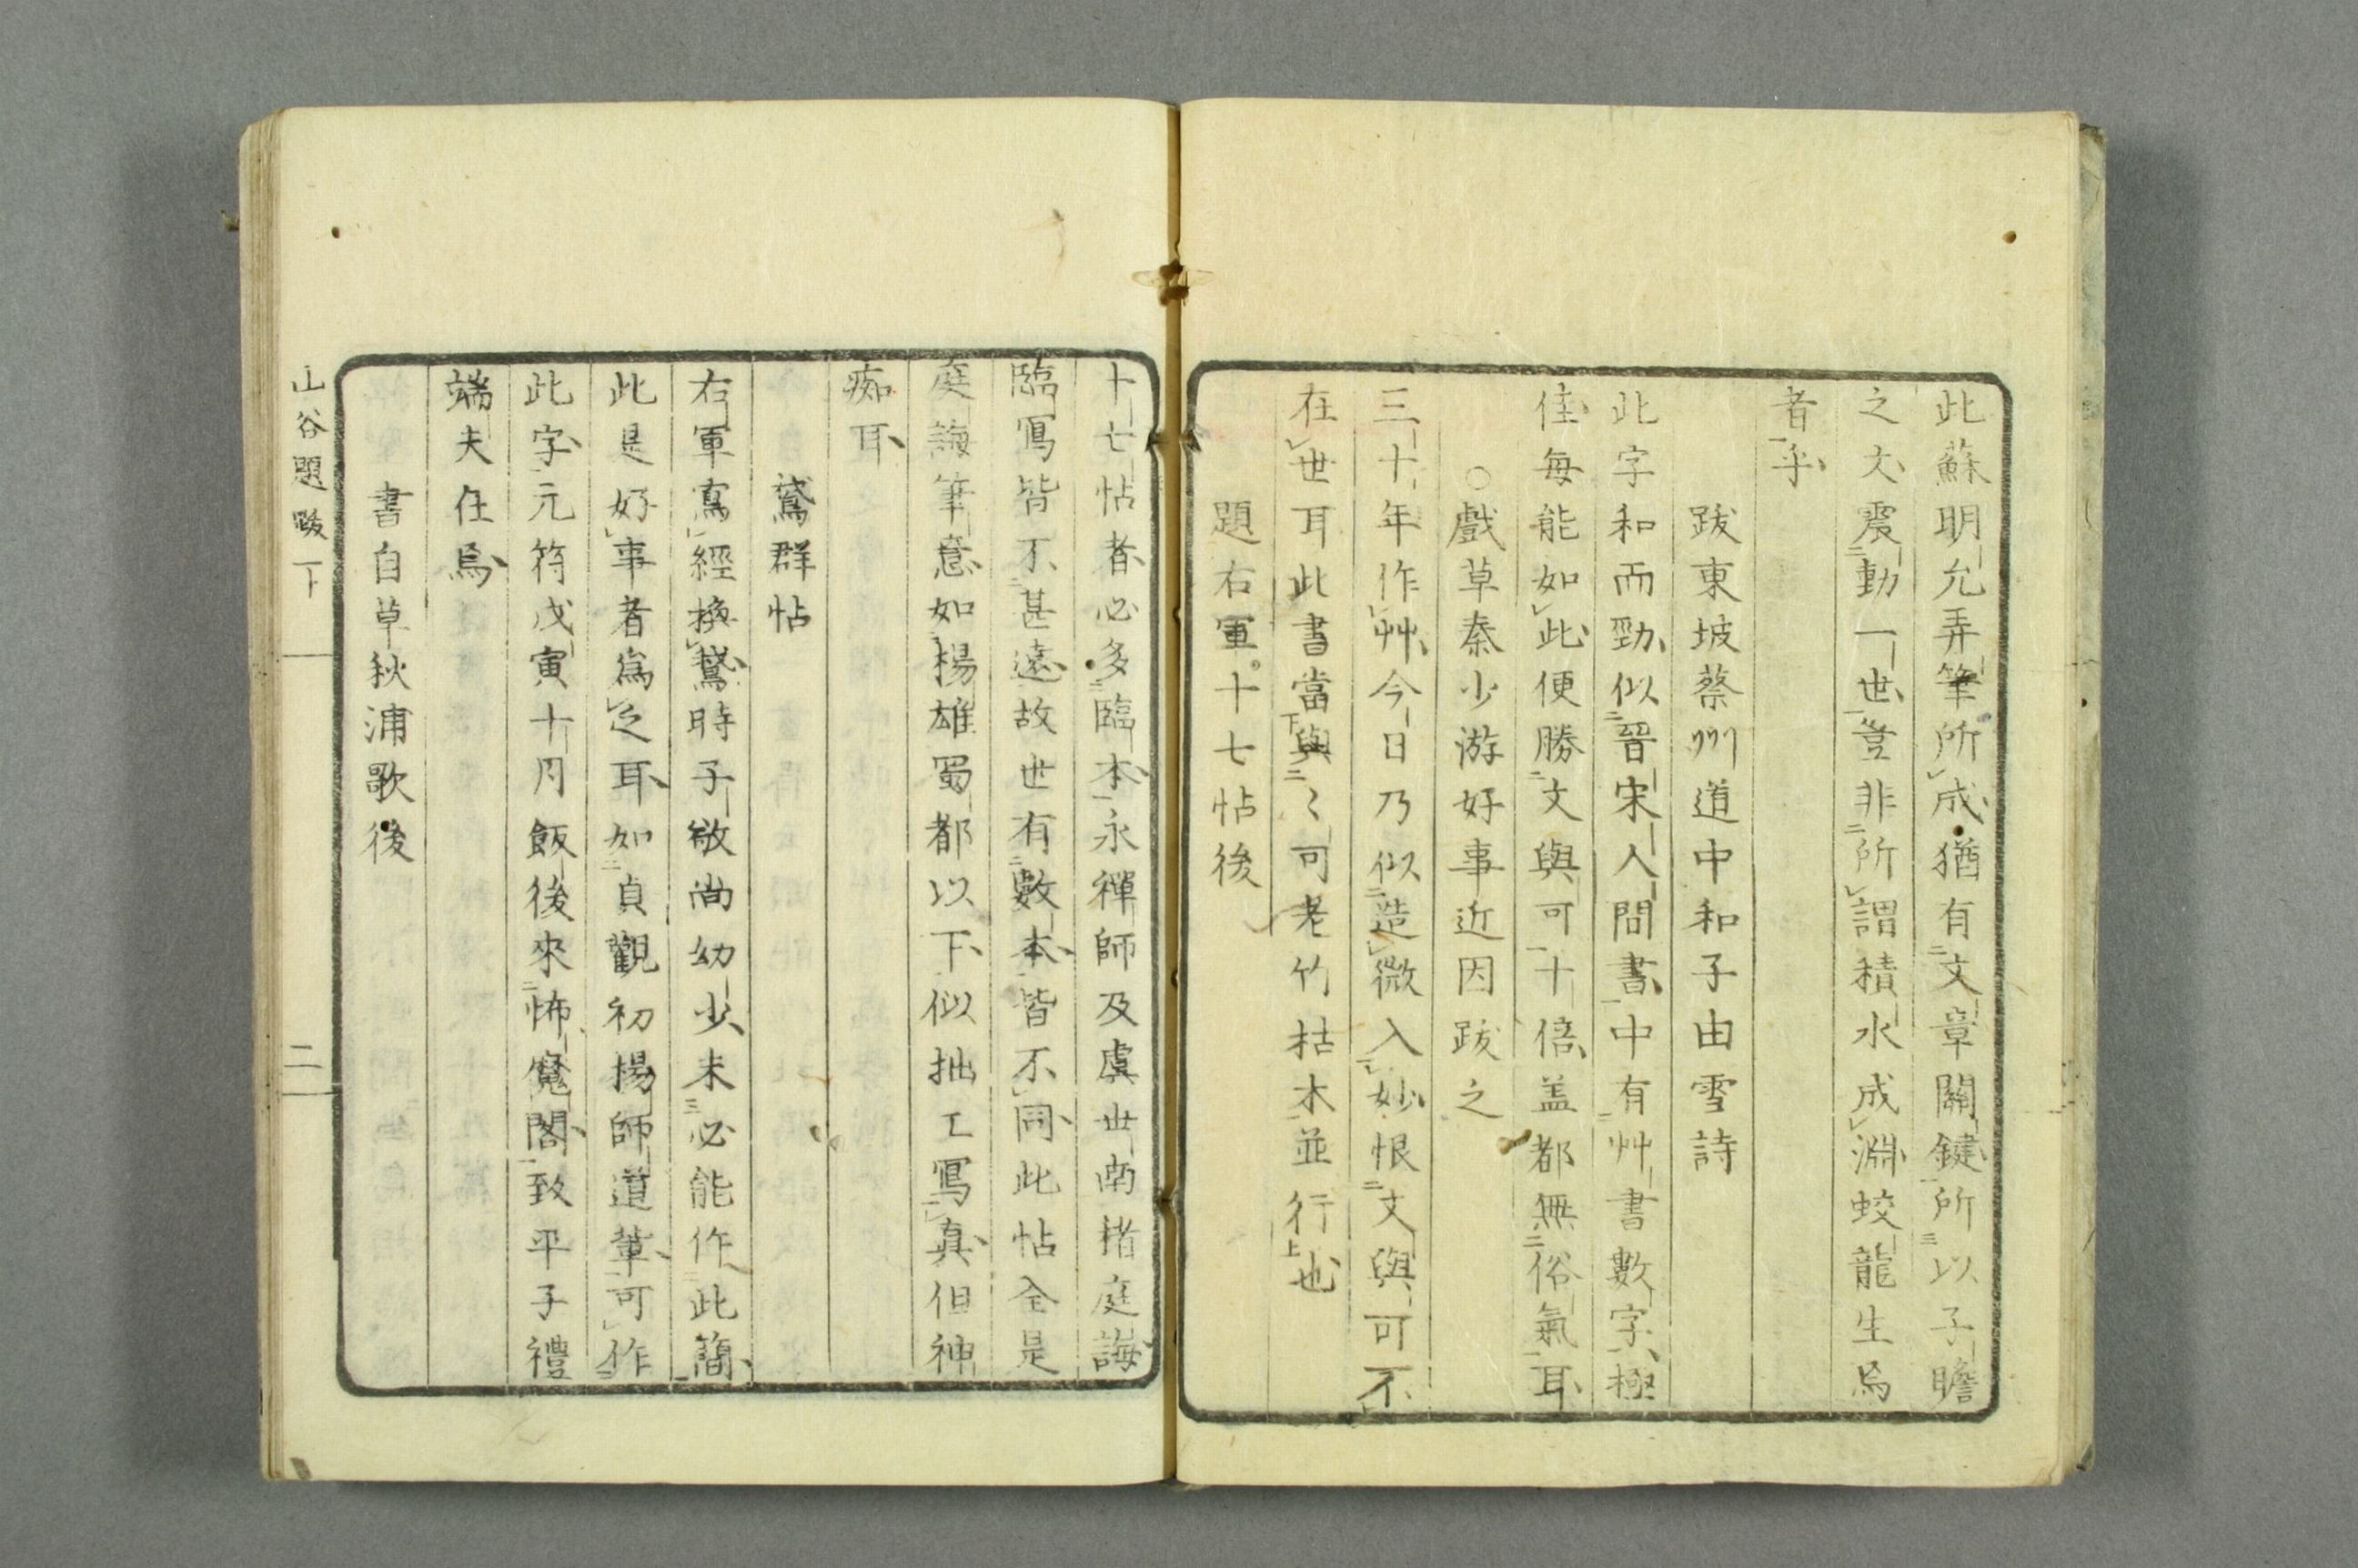 此蘇明允弄筆所成猶有文章關鍵所以子瞻
之文震動一世豈非所謂積水成淵蛟龍生焉
者乎
跋東坡蔡州道中和子由雪詩
此字和而勁似晉宋人間書中有艸書數字極
佳每能如此便勝文與可十倍盖都無俗氣耳
○戲草秦少游好事近因跋之
三十年作艸今日乃似造微入妙恨文與可不
在世耳此書當與〻可老竹枯木並行也
題右軍十七帖後
十七帖者必多臨本永禪師及虞世南褚庭誨
臨寫皆不甚遠故世有數本皆不同此帖全是
庭誨筆意如楊雄蜀都以下似拙工寫真但神
癡耳
鵞群帖
右軍寫經換鵞時子敬尚幼少未必能作此簡
此是好事者為之耳如貞觀初揚師道輩可作
此字元符戊寅十月飯後來怖魔閣致平子禮
端夫在焉
書自草秋浦歌後
山谷題跋下
二